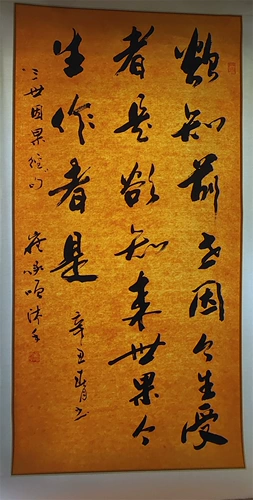 欲知前世因今生受
者是欲知来世果今
生作者是
辛丑春书
三世因果经句
沐手